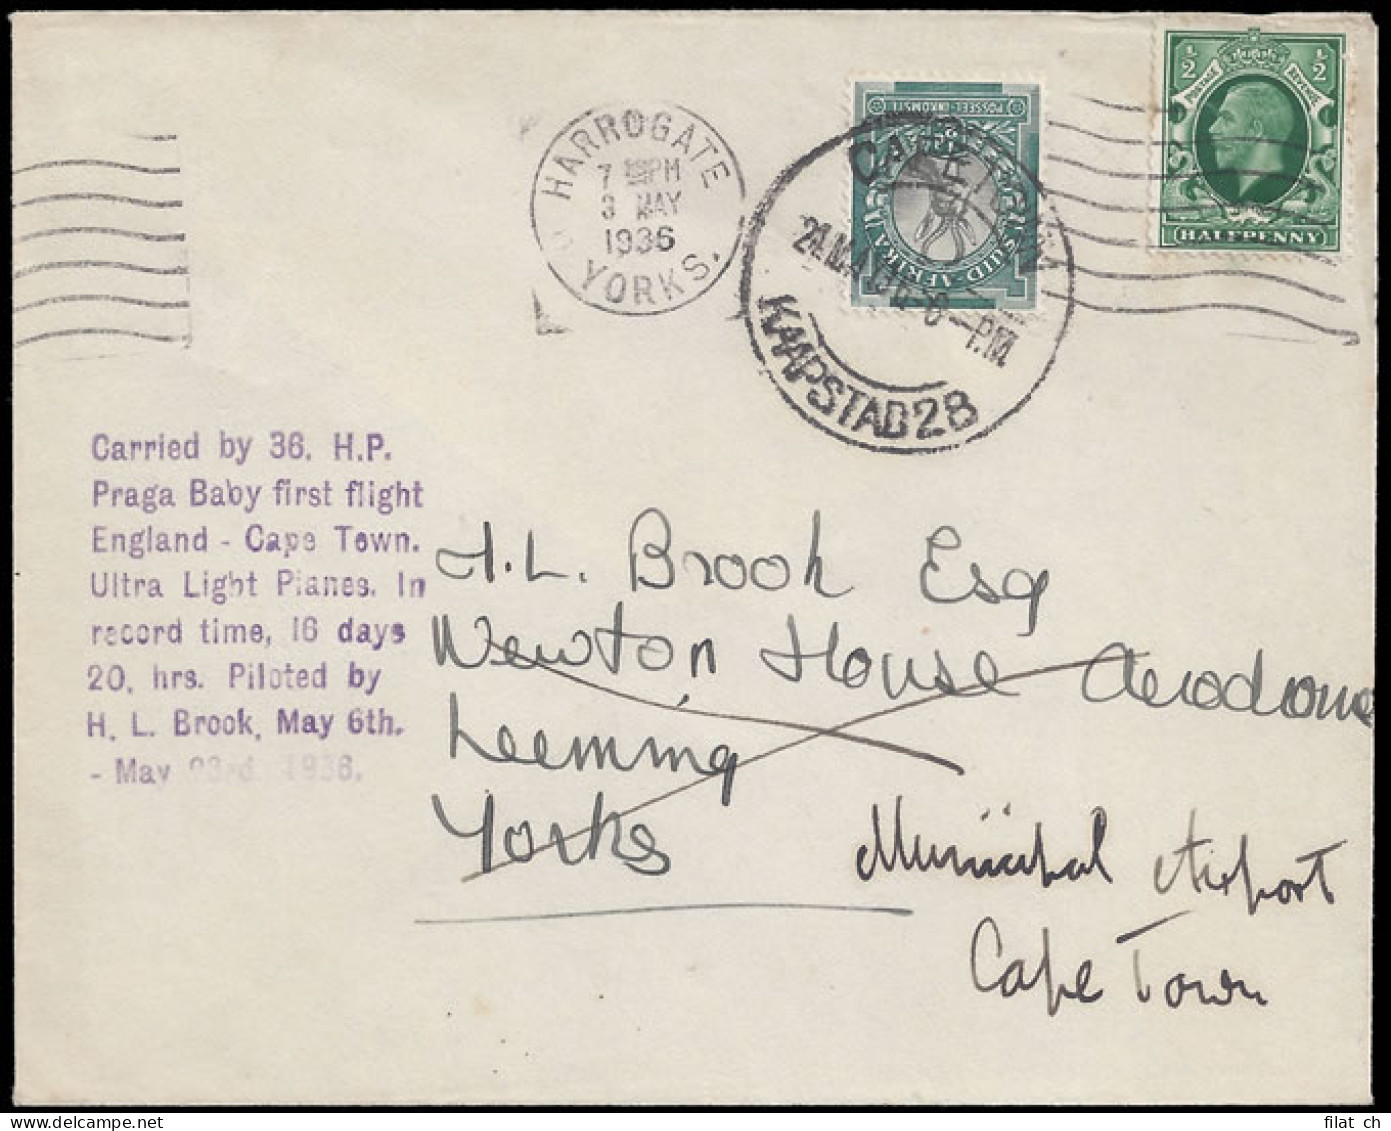 HARROGATE
7 PM
3 MAY
1936
YORKS.
POSSEEL-INKOMSTE
SUID-AFRIKA
CAPE TOWN
24 MAY 36 6-PM
KAAPSTAD 28
1/2 1/2
POSTAGE REVENUE
HALFPENNY
Carried by 36. H.P.
Praga Baby first flight
England - Cape Town.
Ultra Light Planes. In
record time, 16 days
20. hrs. Piloted by
H. L. Brook, May 6th.
- May 23rd. 1936.
H.L. Brook Esq
Newton House Aerodrome
Leeming
Yorks
Municipal Airport
Cape Town
filat ch